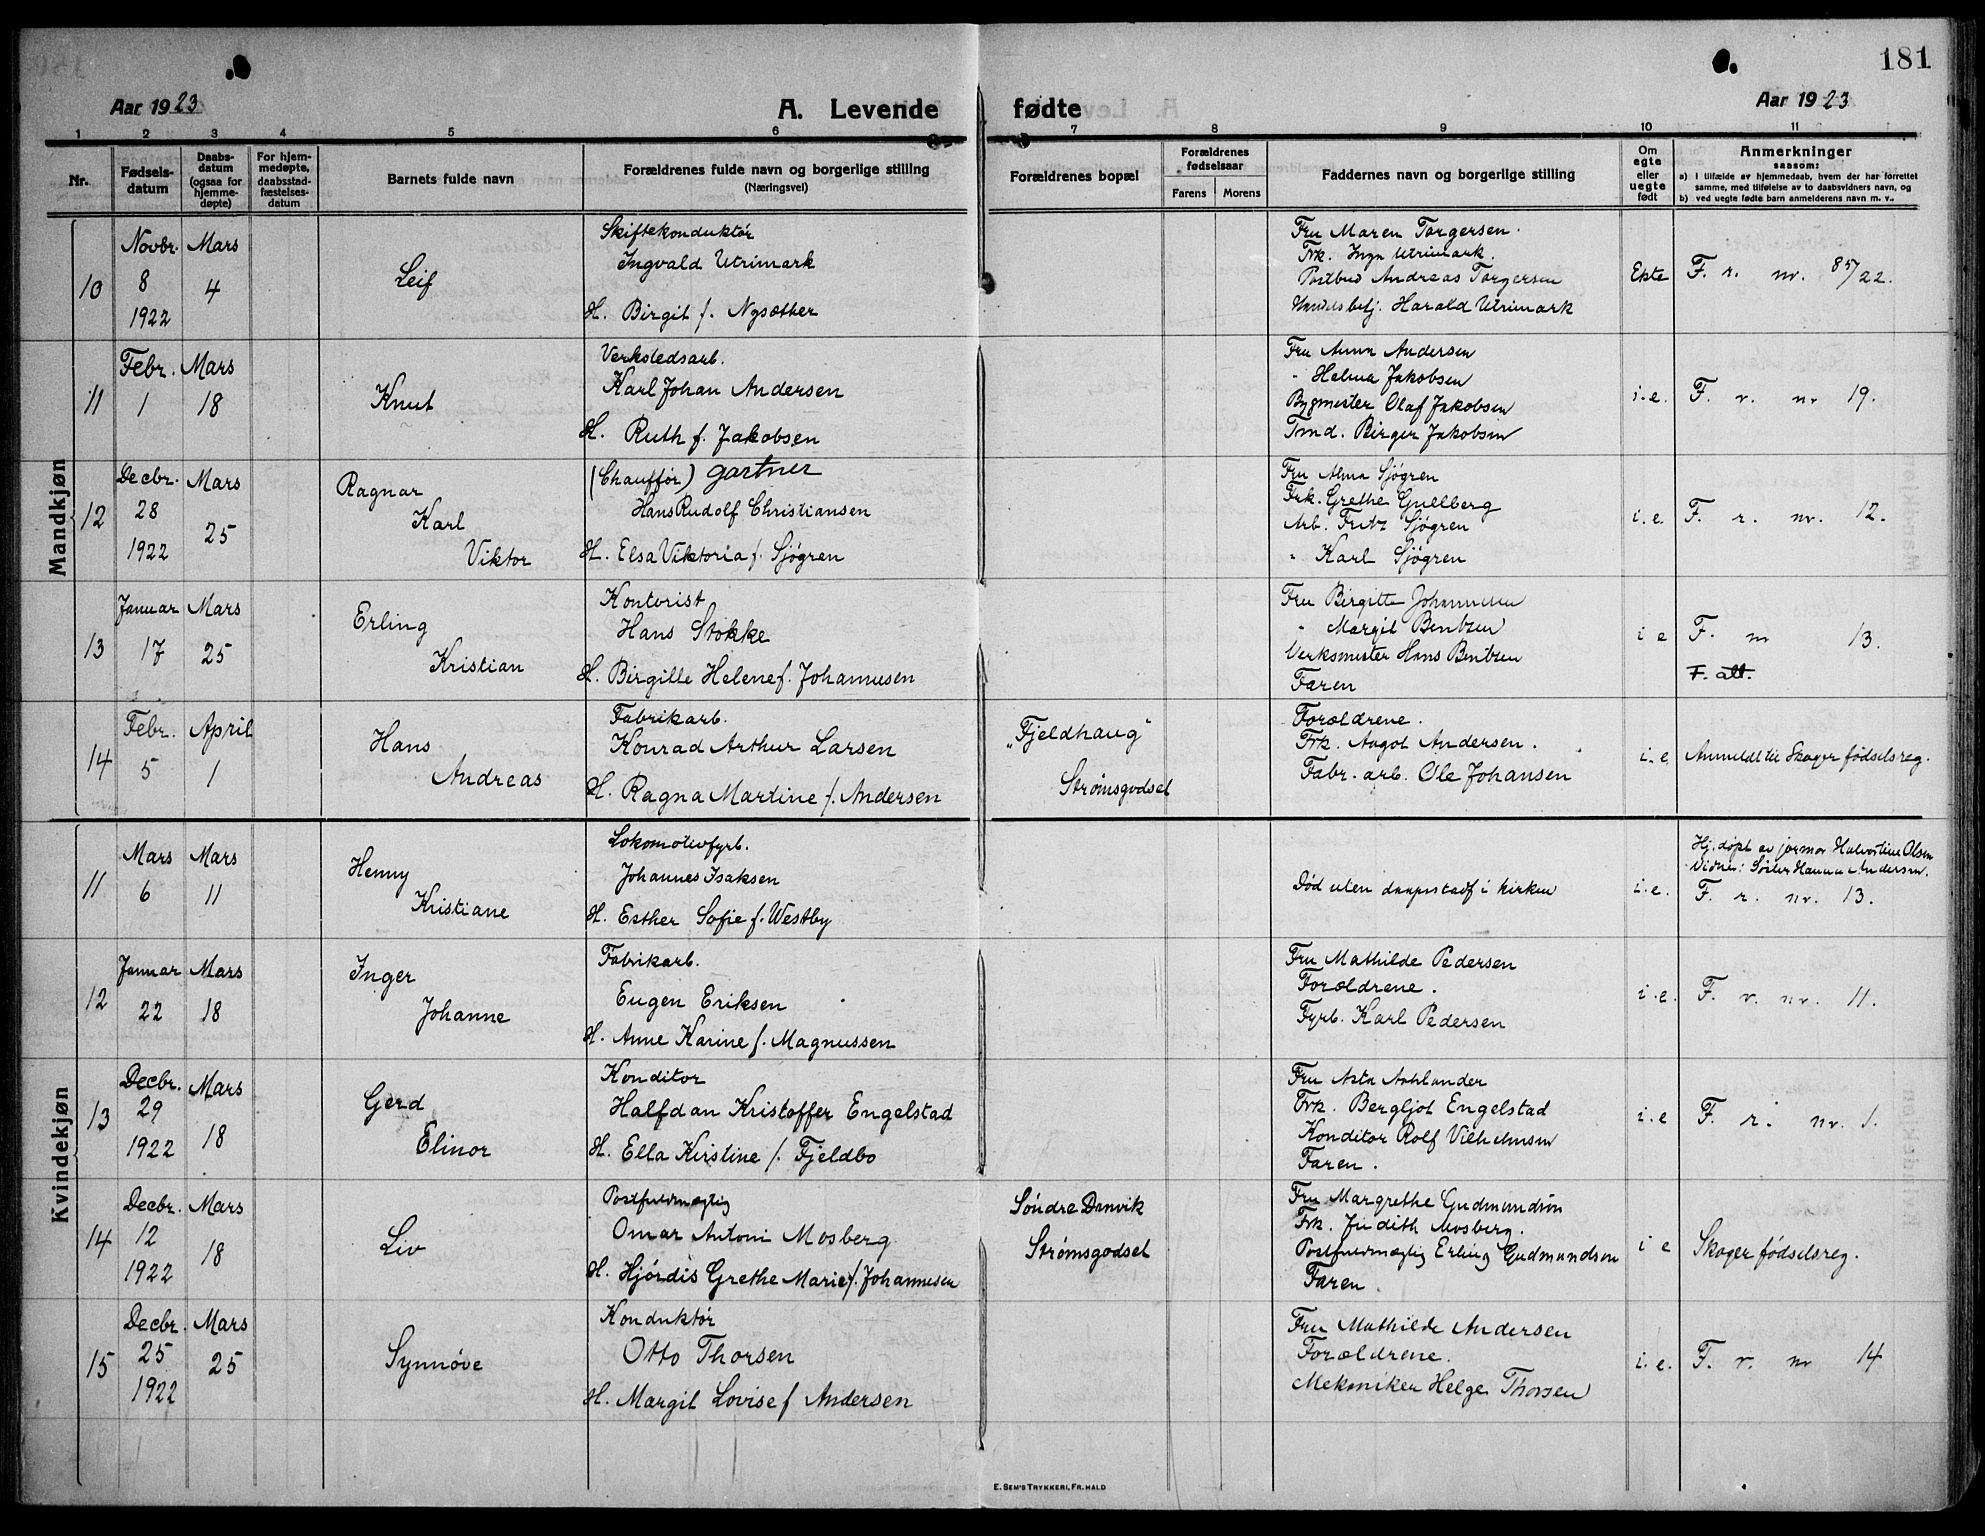 181
Aar 1923
A. Levende
fødte
Aar 1923
1 2 3 4 5 6 7 8 9 10 11
Nr.
Fødsels-
datum
Daabs-
datum
(ogsaa for
hjemme-
døpte)
For hjem-
medøpte,
daabsstad-
fæstelses-
datum
Barnets fulde navn
Forældrenes fulde navn og borgerlige stilling
(Næringsvei)
Forældrenes bopæl
Forældrenes
fødselsaar
Farens Morens
Faddernes navn og borgerlige stilling
Om
egte
eller
uegte
født
Anmerkninger
saasom:
a) I tilfælde av hjemmedaab, hvem der har forrettet
samme, med tilføielse av to daabsvidners navn, og
b) ved uegte fødte barn anmelderens navn m. v.
Mandkjøn
10
Novbr.
8
1922
Mars
4
Leif
Skiftekonduktør
Ingvald Utrimark
H. Birgit f. Nysæther
Fru Maren Torgersen.
Frk. Inga Utrimark.
Postbud Andreas Torgersen
Harald Utrimark
Ekte
F. r. nr. 85/22.
11
Febr.
1
Mars
18
Knut
Verkstedsarb.
Karl Johan Andersen
H. Ruth f. Jakobsen
Fru Anna Andersen
" Helma Jakobsen
Bygmester Olaf Jakobsen
Tmd. Birger Jakobsen
i.e.
F. r. nr 19.
12
Decbr.
28
1922
Mars
25
Ragnar
Karl
Viktor
(Chauffør) gartner
Hans Rudolf Christiansen
H. Elsa Viktoria f. Sjøgren
Fru Alma Sjøgren
Frk. Grethe Gullberg
Arb. Fritz Sjøgren
" Karl Sjøgren
i.e.
F. r. nr. 12.
13
Januar
17
Mars
25
Erling
Kristian
Kontorist
Hans Stokke
H. Birgitte Helene f. Johannesen
Fru Birgitte Johannesen
" Margit Bentzen
Verksmester Hans Bentzen
Faren
i e
F. nr 13.
F. att.
14
Febr.
5
April
1
Hans
Andreas
Fabrikarb.
Konrad Arthur Larsen
H. Ragna Martine f. Andersen
"Fjeldhaug"
Strømsgodset
Forældrene.
Frk. Aagot Andersen.
Fabr. arb. Ole Johansen
i.e
Anmeldt til Skoger fødselsreg.
Kvindekjøn
11
Mars
6
Mars
11
Henny
Kristiane
Lokomotivfyrb.
Johannes Isaksen
H. Esther Sofie f. Westby
Død uten daapsstadf i kirken
i.e.
Hj. døpt av jormor Halvordine Olsen
Vidne: Søster Hanna Andersen.
F. r. nr. 13.
12
Januar
22
Mars
18
Inger
Johanne
Fabrikarb.
Eugen Eriksen
H. Anne Karine f. Magnussen
Fru Mathilde Pedersen
Forældrene.
Fyrb. Karl Pedersen
i.e.
F. r. nr. 11.
13
Decbr.
29
1922
Mars
18
Gerd
Elinor
Konditor
Halfdan Kristoffer Engelstad
H. Ella Kirstine f. Fjeldbo
Fru Asta Aahlander
Frk. Bergljot Engelstad
Konditor Rolf Vilhelmsen
Faren.
i.e
F. r. nr. 1.
14
Decbr.
12
1922
Mars
18
Liv
Postfuldmægtig
Omar Antoni Mosberg
H. Hjørdis Grethe Marie f. Johannesen
Søndre Danvik
Strømsgodset
Fru Margrethe Gudmundsøn
Frk. Judith Mosberg.
Postfuldmægtig Erling Gudmundsen
Faren.
i e
Skoger fødselsreg.
15
Decbr.
25
1922
Mars
25
Synnøve
Konduktør
Otto Thorsen
H. Margit Lovise f Andersen
Fru Mathilde Andersen
Forældrene.
Mekaniker Helge Thorsen
i.e.
F. r. nr 14
E. Sem's Trykkeri, Fr.hald